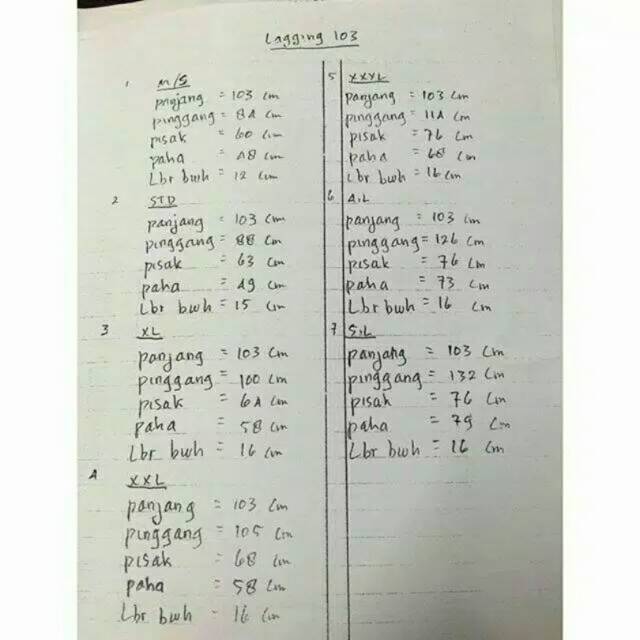 Lagging 103
1 M/S
panjang = 103 cm
pinggang = 84 cm
pisak = 60 cm
paha = 48 cm
Lbr bwh = 12 cm
2 STD
panjang = 103 cm
pinggang = 88 cm
pisak = 63 cm
paha = 49 cm
Lbr bwh = 15 cm
3 XL
panjang = 103 cm
pinggang = 100 cm
pisak = 64 cm
paha = 58 cm
Lbr bwh = 16 cm
4 XXL
panjang = 103 cm
pinggang = 105 cm
pisak = 68 cm
paha = 58 cm
Lbr bwh = 16 cm
5 XXXL
panjang = 103 cm
pinggang = 114 cm
pisak = 76 cm
paha = 68 cm
Lbr bwh = 16 cm
6 4.L
panjang = 103 cm
pinggang = 126 cm
pisak = 76 cm
paha = 73 cm
Lbr bwh = 16 cm
7 5.L
panjang = 103 cm
pinggang = 132 cm
pisak = 76 cm
paha = 79 cm
Lbr bwh = 16 cm